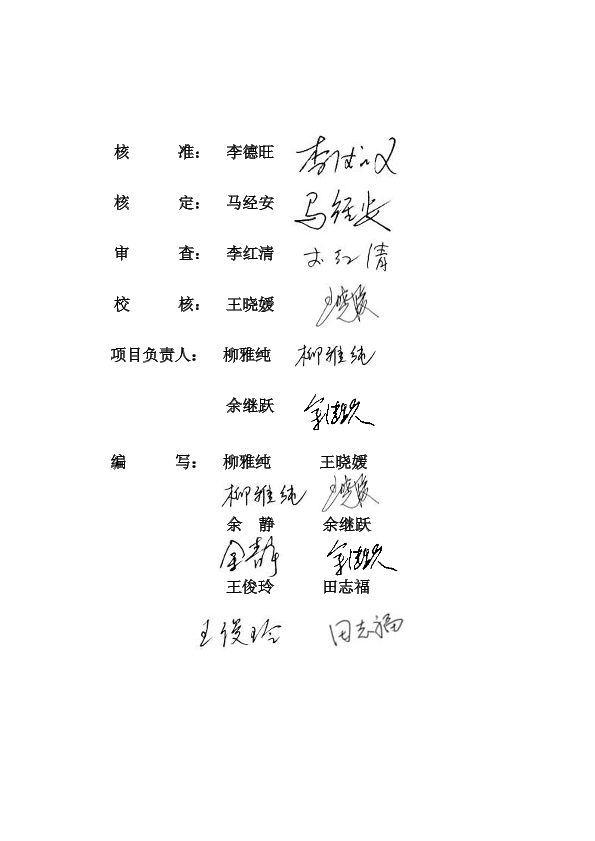 核 准： 李德旺
核 定： 马经安 马经安
审 查： 李红清 李红清
校 核： 王晓媛 王晓媛
项目负责人： 柳雅纯 柳雅纯
余继跃 余继跃
编 写： 柳雅纯 王晓媛
柳雅纯 王晓媛
余 静 余继跃
余静 余继跃
王俊玲 田志福
王俊玲 田志福